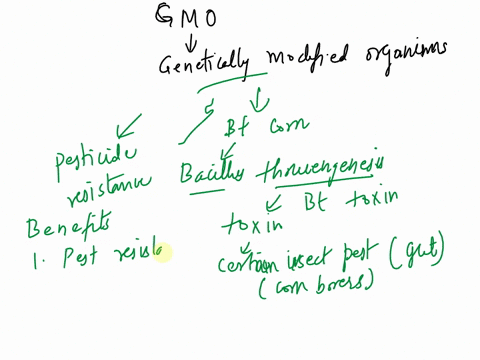 GMO
Genetically modified organisms
Bt corn
Pesticide
resistance
Bacillus thruengenesis
Bt toxin
toxin
Benefits
1. Pest resista
certain insect pest (gut)
(corn borers)